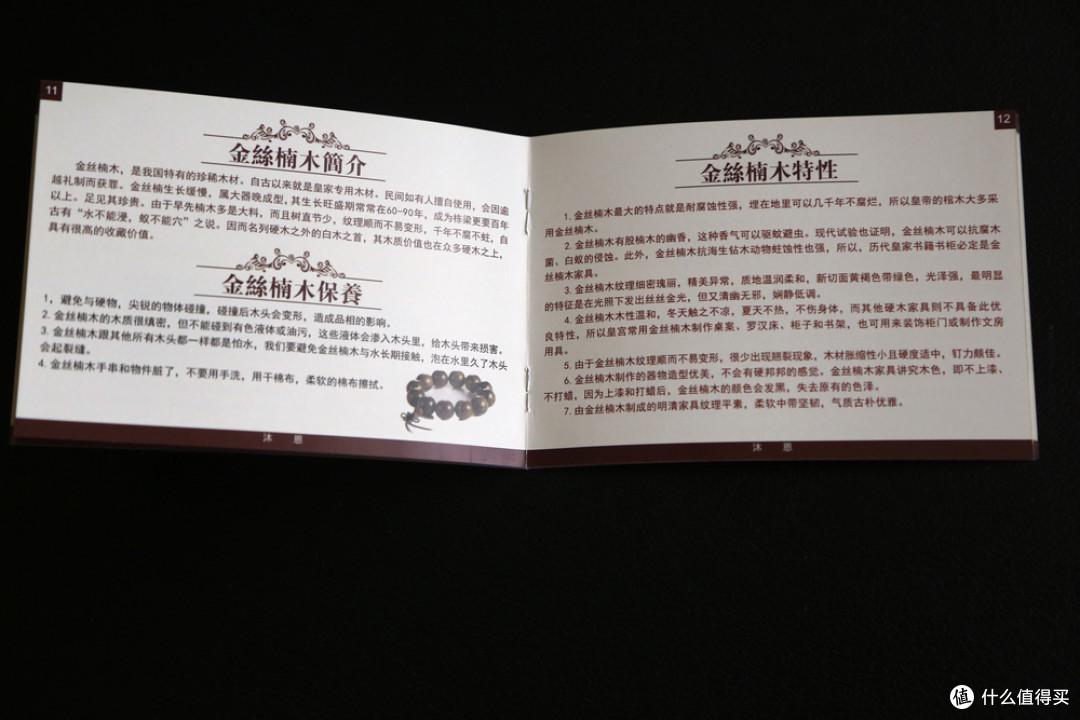 11
金絲楠木簡介
金丝楠木，是我国特有的珍稀木材。自古以来就是皇家专用木材。民间如有人擅自使用，会因逾
越礼制而获罪。金丝楠生长缓慢，属大器晚成型，其生长旺盛期常常在60-90年，成为栋梁更要百年
以上。足见其珍贵。由于早先楠木多是大料，而且树直节少，纹理顺而不易变形，千年不腐不蛀，自
古有“水不能浸，蚁不能穴”之说。因而名列硬木之外的白木之首，其木质价值也在众多硬木之上，
具有很高的收藏价值。
金絲楠木保養
1，避免与硬物，尖锐的物体碰撞，碰撞后木头会变形，造成品相的影响。
2. 金丝楠木的木质很缜密，但不能碰到有色液体或油污，这些液体会渗入木头里，给木头带来损害。
3. 金丝楠木跟其他所有木头都一样都是怕水，我们要避免金丝楠木与水长期接触，泡在水里久了木头
会起裂缝。
4. 金丝楠木手串和物件脏了，不要用手洗，用干棉布，柔软的棉布擦拭。
沐 恩
12
金絲楠木特性
1. 金丝楠木最大的特点就是耐腐蚀性强，埋在地里可以几千年不腐烂，所以皇帝的棺木大多采
用金丝楠木。
2. 金丝楠木有股楠木的幽香，这种香气可以驱蚊避虫。现代试验也证明，金丝楠木可以抗腐木
菌、白蚁的侵蚀。此外，金丝楠木抗海生钻木动物蛀蚀性也强，所以，历代皇家书籍书柜必定是金
丝楠木家具。
3. 金丝楠木纹理细密瑰丽，精美异常，质地温润柔和，新切面黄褐色带绿色，光泽强，最明显
的特征是在光照下发出丝丝金光，但又清幽无邪，娴静低调。
4. 金丝楠木木性温和，冬天触之不凉，夏天不热，不伤身体，而其他硬木家具则不具备此优
良特性，所以皇宫常用金丝楠木制作桌案、罗汉床、柜子和书架，也可用来装饰柜门或制作文房
用具。
5. 由于金丝楠木纹理顺而不易变形，很少出现翘裂现象，木材胀缩性小且硬度适中，钉力颇佳。
6. 金丝楠木制作的器物造型优美，不会有硬邦邦的感觉。金丝楠木家具讲究木色，即不上漆、
不打蜡，因为上漆和打蜡后，金丝楠木的颜色会发黑，失去原有的色泽。
7. 由金丝楠木制成的明清家具纹理平素，柔软中带坚韧，气质古朴优雅。
沐 恩
值 什么值得买